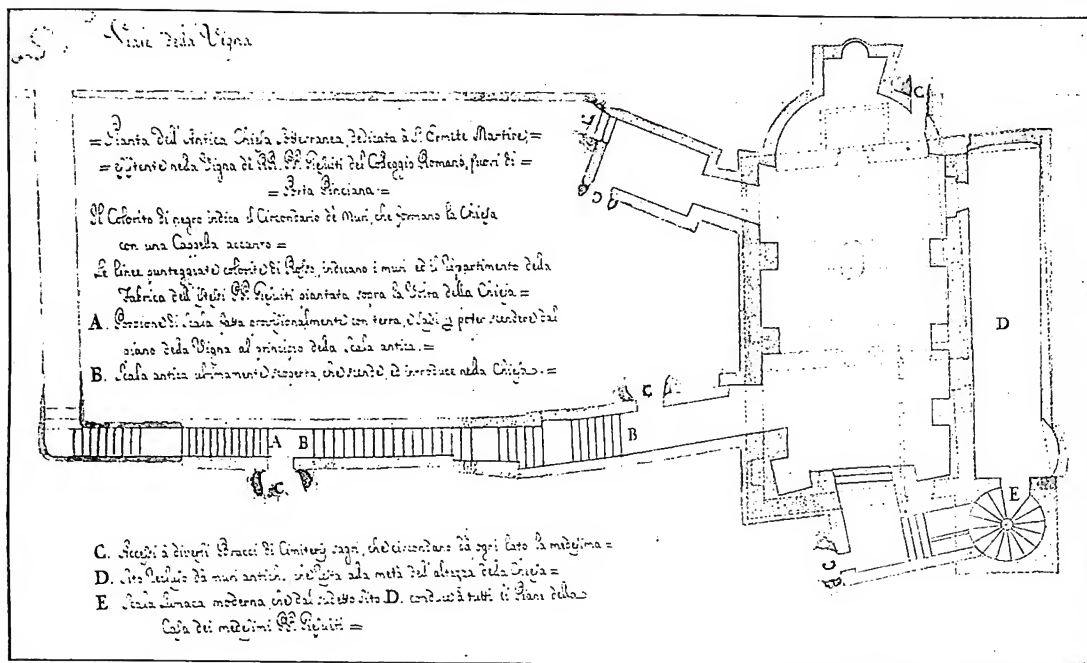 Viale della Vigna
= Pianta dell'Antica Chiesa sotterranea, dedicata à S. Ermete Martire, =
= esistente nella Vigna de RR. PP. Giesuiti del Colleggio Romano, fuori di =
= Porta Pinciana. =
Il Colorito di negro indica il Circondario de Muri, che formano la Chiesa
con una Cappella accanto =
Le linee punteggiate colorite di Rosso, indicano i muri ed il Ripartimento della
Fabrica dell' istessi PP. Giesuiti piantata sopra la Volta della Chiesa =
A. Porzione di scala fatta provisionalmente con terra, e sassi p poter scendere dal
piano della Vigna al principio della scala antica. =
B. Scala antica ultimamente scoperta, che scende, ed introduce nella Chiesa. =
A B B
C C C C C C
D
E
C. Accessi à diversi Bracci di Cimiterj sagri, che circondano da ogni lato la medesima =
D. Sito da muri antichi, che alla metà dell'altezza della Chiesa =
E Scala Lumaca moderna, che dal sudetto sito D. conduce à tutti li Piani della
Casa dei medesimi PP. Giesuiti =